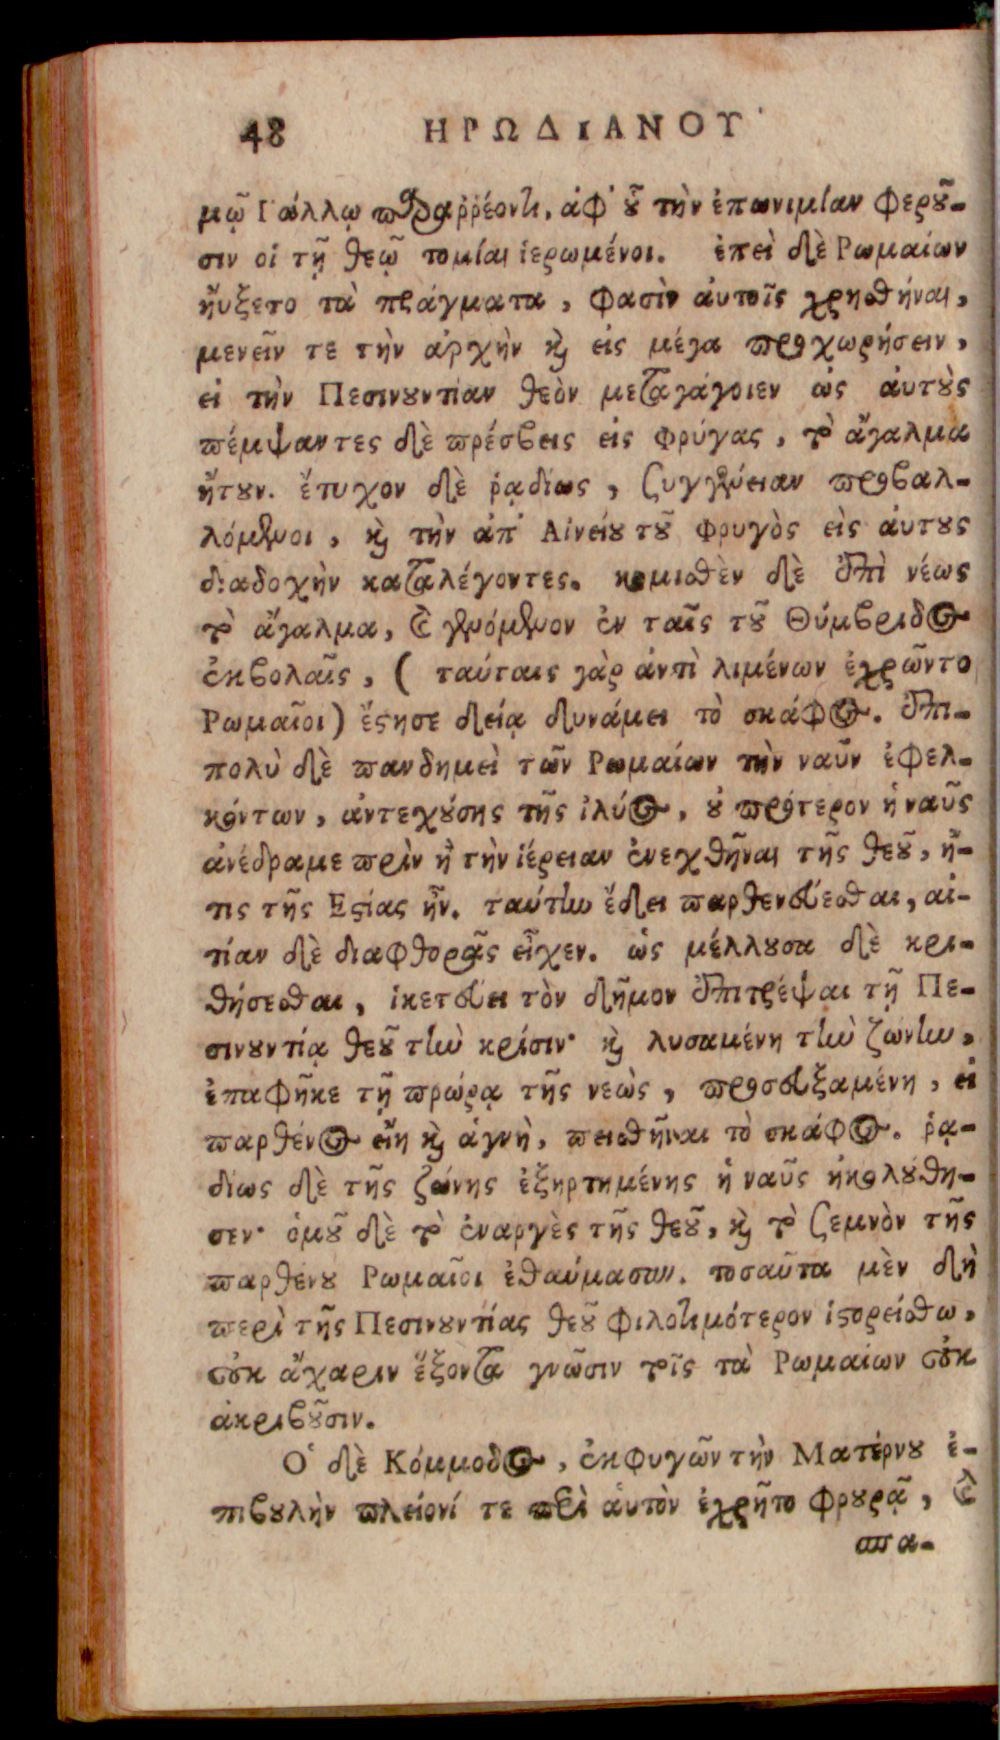 48 ΗΡΩΔΙΑΝΟΥ
μῷ Γάλλῳ παραῤῥέοντι, ἀφ' οὗ τὴν ἐπωνιμίαν φεροῦ-
σιν οἱ τῇ θεῷ τομίαι ἱερωμένοι. ἐπεὶ δὲ Ρωμαίων
ηὔξετο τὰ πράγματα, φασὶν αὐτοῖς χρησθῆναι,
μενεῖν τε τὴν ἀρχὴν καὶ εἰς μέγα προχωρήσειν,
εἰ τὴν Πεσινουντίαν θεὸν μεταγάγοιεν ὡς αὐτοὺς
πέμψαντες δὲ πρέσβεις εἰς Φρύγας, τὸ ἄγαλμα
ᾔτουν. ἔτυχον δὲ ῥᾳδίως, συγγένειαν προβαλ-
λόμενοι, καὶ τὴν ἀπ' Αἰνείου τοῦ Φρυγὸς εἰς αὐτους
διαδοχὴν καταλέγοντες. κομισθὲν δὲ ἐπὶ νέως
τὸ ἄγαλμα, καὶ γενόμενον ἐν ταῖς τοῦ Θύμβριδος
ἐκβολαῖς, (ταύταις γὰρ ἀντὶ λιμένων ἐχρῶντο
Ρωμαῖοι) ἔστησε θείᾳ δυνάμει τὸ σκάφος. ἐπι-
πολὺ δὲ πανδημεὶ τῶν Ρωμαίων τὴν ναῦν ἐφελ-
κόντων, ἀντεχούσης τῆς ἰλύος, οὐ πρότερον ἡ ναῦς
ἀνέδραμε πρὶν ἢ τὴν ἱέρειαν ἐνεχθῆναι τῆς θεοῦ, ἥ-
τις τῆς Εστίας ἦν. ταύτην ἔδει παρθενεύεσθαι, αἰ-
τίαν δὲ διαφθορᾶς εἶχεν. ὡς μέλλουσα δὲ κρι-
θήσεσθαι, ἱκετεύει τὸν δῆμον ἐπιτρέψαι τῇ Πε-
σινουντίᾳ θεοῦ τὴν κρίσιν· καὶ λυσαμένη τὴν ζώνην,
ἐπαφῆκε τῇ πρώρᾳ τῆς νεὼς, προσευξαμένη, εἰ
παρθένος εἴη καὶ ἁγνὴ, πεισθῆναι τὸ σκάφος. ῥᾳ-
δίως δὲ τῆς ζώνης ἐξηρτημένης ἡ ναῦς ἠκολούθη-
σεν· ὁμοῦ δὲ τὸ ἐναργὲς τῆς θεοῦ, καὶ τὸ σεμνὸν τῆς
παρθένου Ρωμαῖοι ἐθαύμασαν. τοσαῦτα μὲν δὴ
περὶ τῆς Πεσινουντίας θεοῦ φιλοτιμότερον ἱστορείσθω,
οὐκ ἄχαριν ἕξοντα γνῶσιν τοῖς τὰ Ρωμαίων οὐκ
ἀκριβοῦσιν.
Ὁ δὲ Κόμμοδος, ἐκφυγῶν τὴν Ματέρνου ἐ-
πιβουλὴν πλείονί τε περὶ αὑτὸν ἐχρῆτο φρουρᾷ, καὶ
σπα-